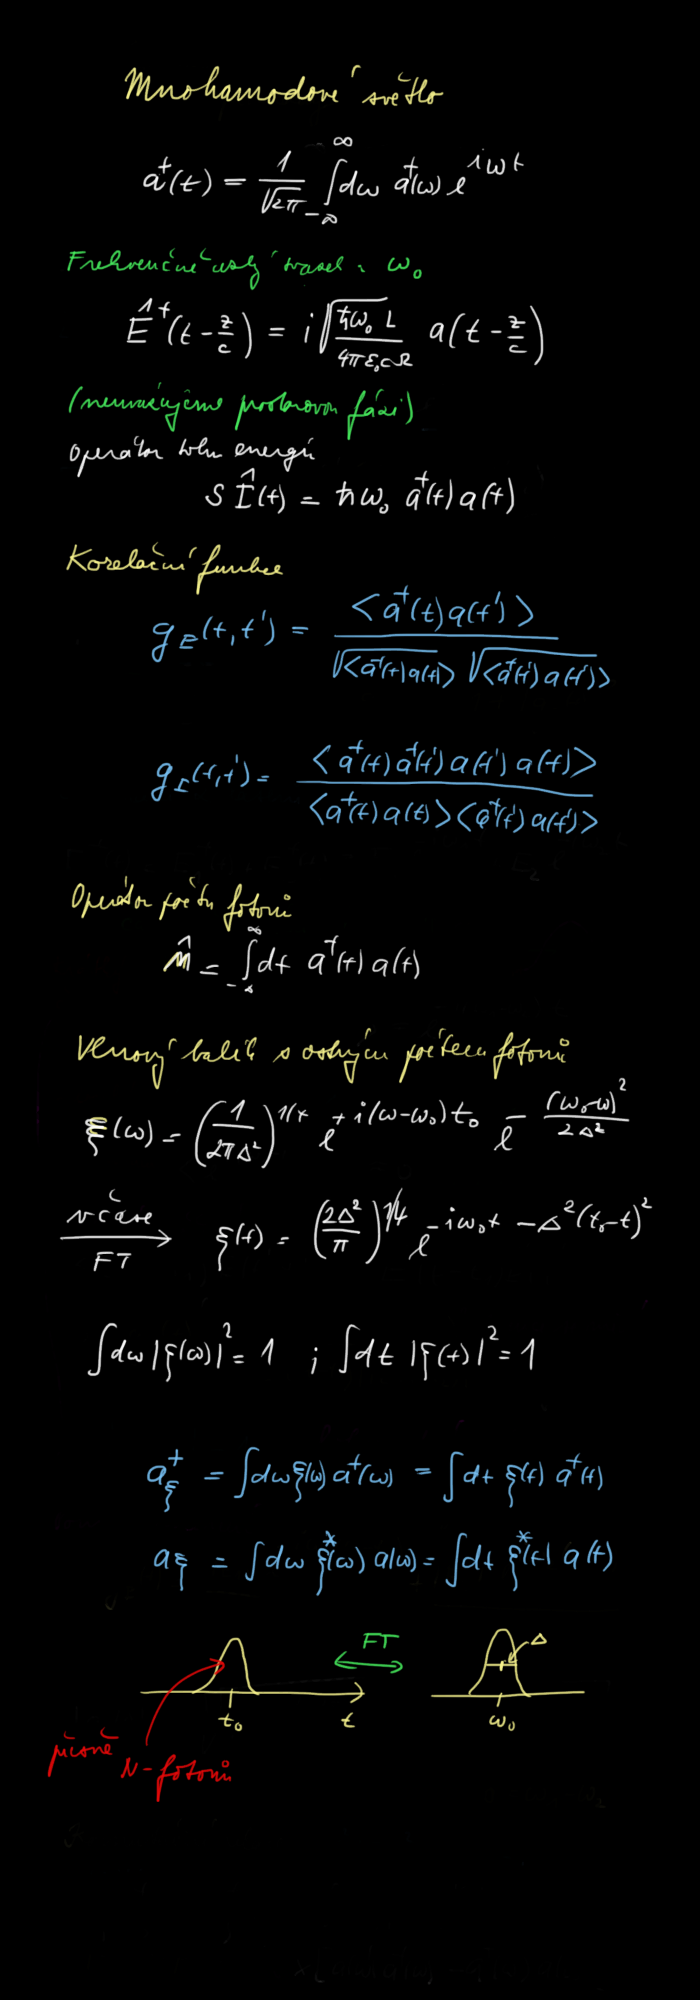 Mnohamodové světlo
a⁺(t) = 1/√2π ∫_{-∞}^{∞} dω a⁺(ω) e^{iωt}
Frekvenčně úzký svazek: ω₀
Ê⁺(t - z/c) = i √(ħω₀ L / 4πε₀cΩ) a(t - z/c)
(neuvažujeme prostorovou fázi)
Operátor toku energií
S Î(t) = ħω₀ a⁺(t) a(t)
Korelační funkce
g_E(t,t') = <a⁺(t) a(t')> / √<a⁺(t) a(t)> √<a⁺(t') a(t')>
g_I(t,t') = <a⁺(t) a⁺(t') a(t') a(t)> / <a⁺(t) a(t)> <a⁺(t') a(t')>
Operátor počtu fotonů
n̂ = ∫_{-∞}^{∞} dt a⁺(t) a(t)
Vlnový balík s ostrým počtem fotonů
ξ(ω) = (1/2πΔ²)^{1/4} e^{+i(ω-ω₀)t₀} e^{-(ω₀-ω)²/2Δ²}
v čase
FT
ξ(t) = (2Δ²/π)^{1/4} e^{-iω₀t - Δ²(t₀-t)²}
∫dω |ξ(ω)|² = 1 ; ∫dt |ξ(t)|² = 1
a⁺_ξ = ∫dω ξ(ω) a⁺(ω) = ∫dt ξ(t) a⁺(t)
a_ξ = ∫dω ξ*(ω) a(ω) = ∫dt ξ*(t) a(t)
FT
Δ
t₀
t
ω₀
přesně N-fotonů